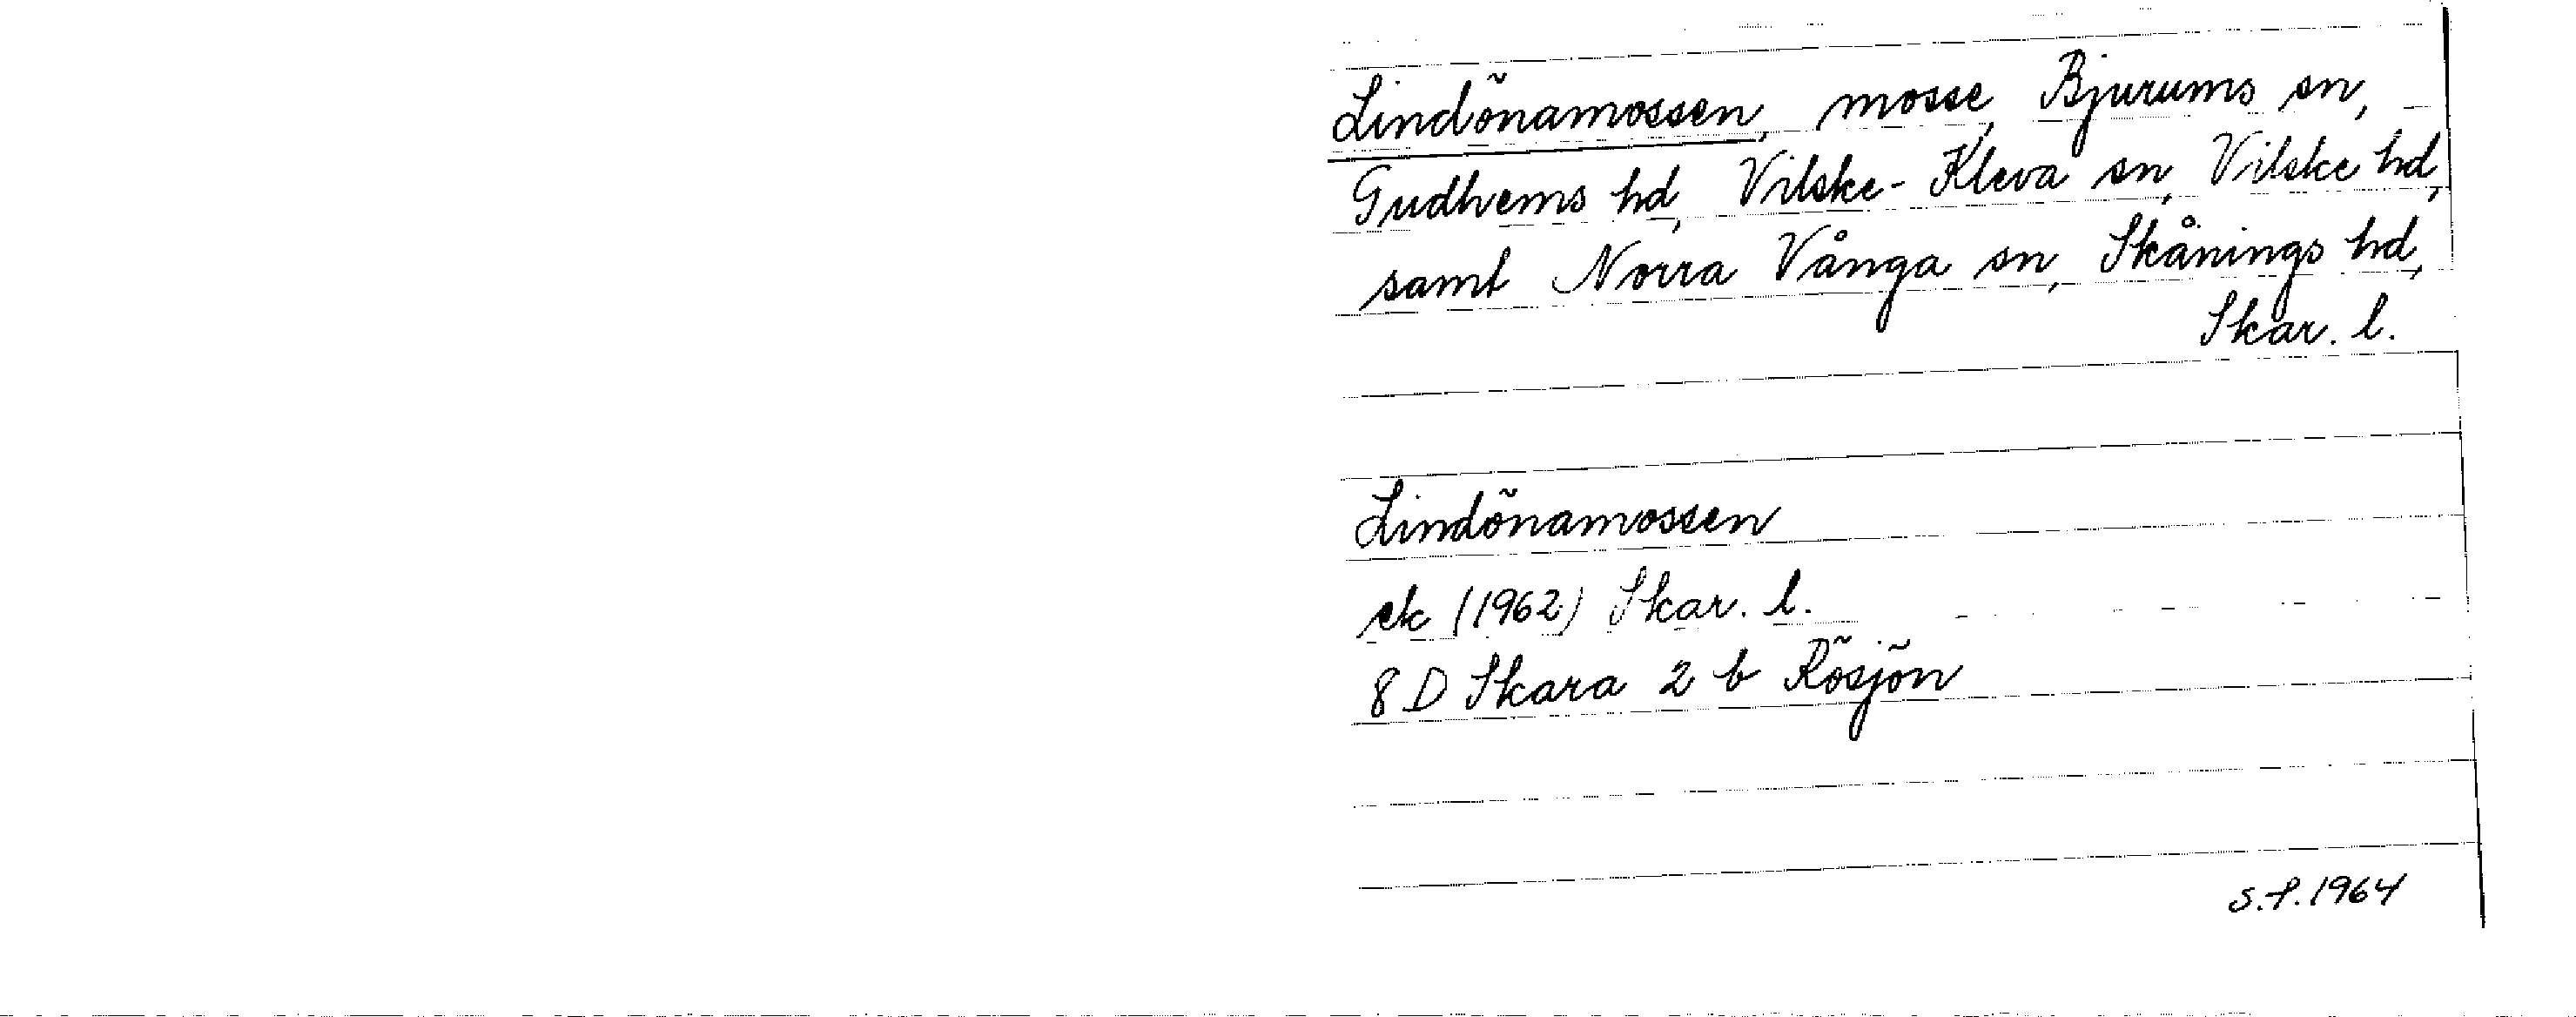 Lindönamossen, mosse, Bjurums sn,
Gudhems hd, Vilske-Kleva sn, Vilske hd,
samt Norra Vånga sn, Skånings hd,
Skar. l.
Lindönamossen
ek (1962) Skar. l.
8 D Skara 2 b Rösjön
S.P. 1964